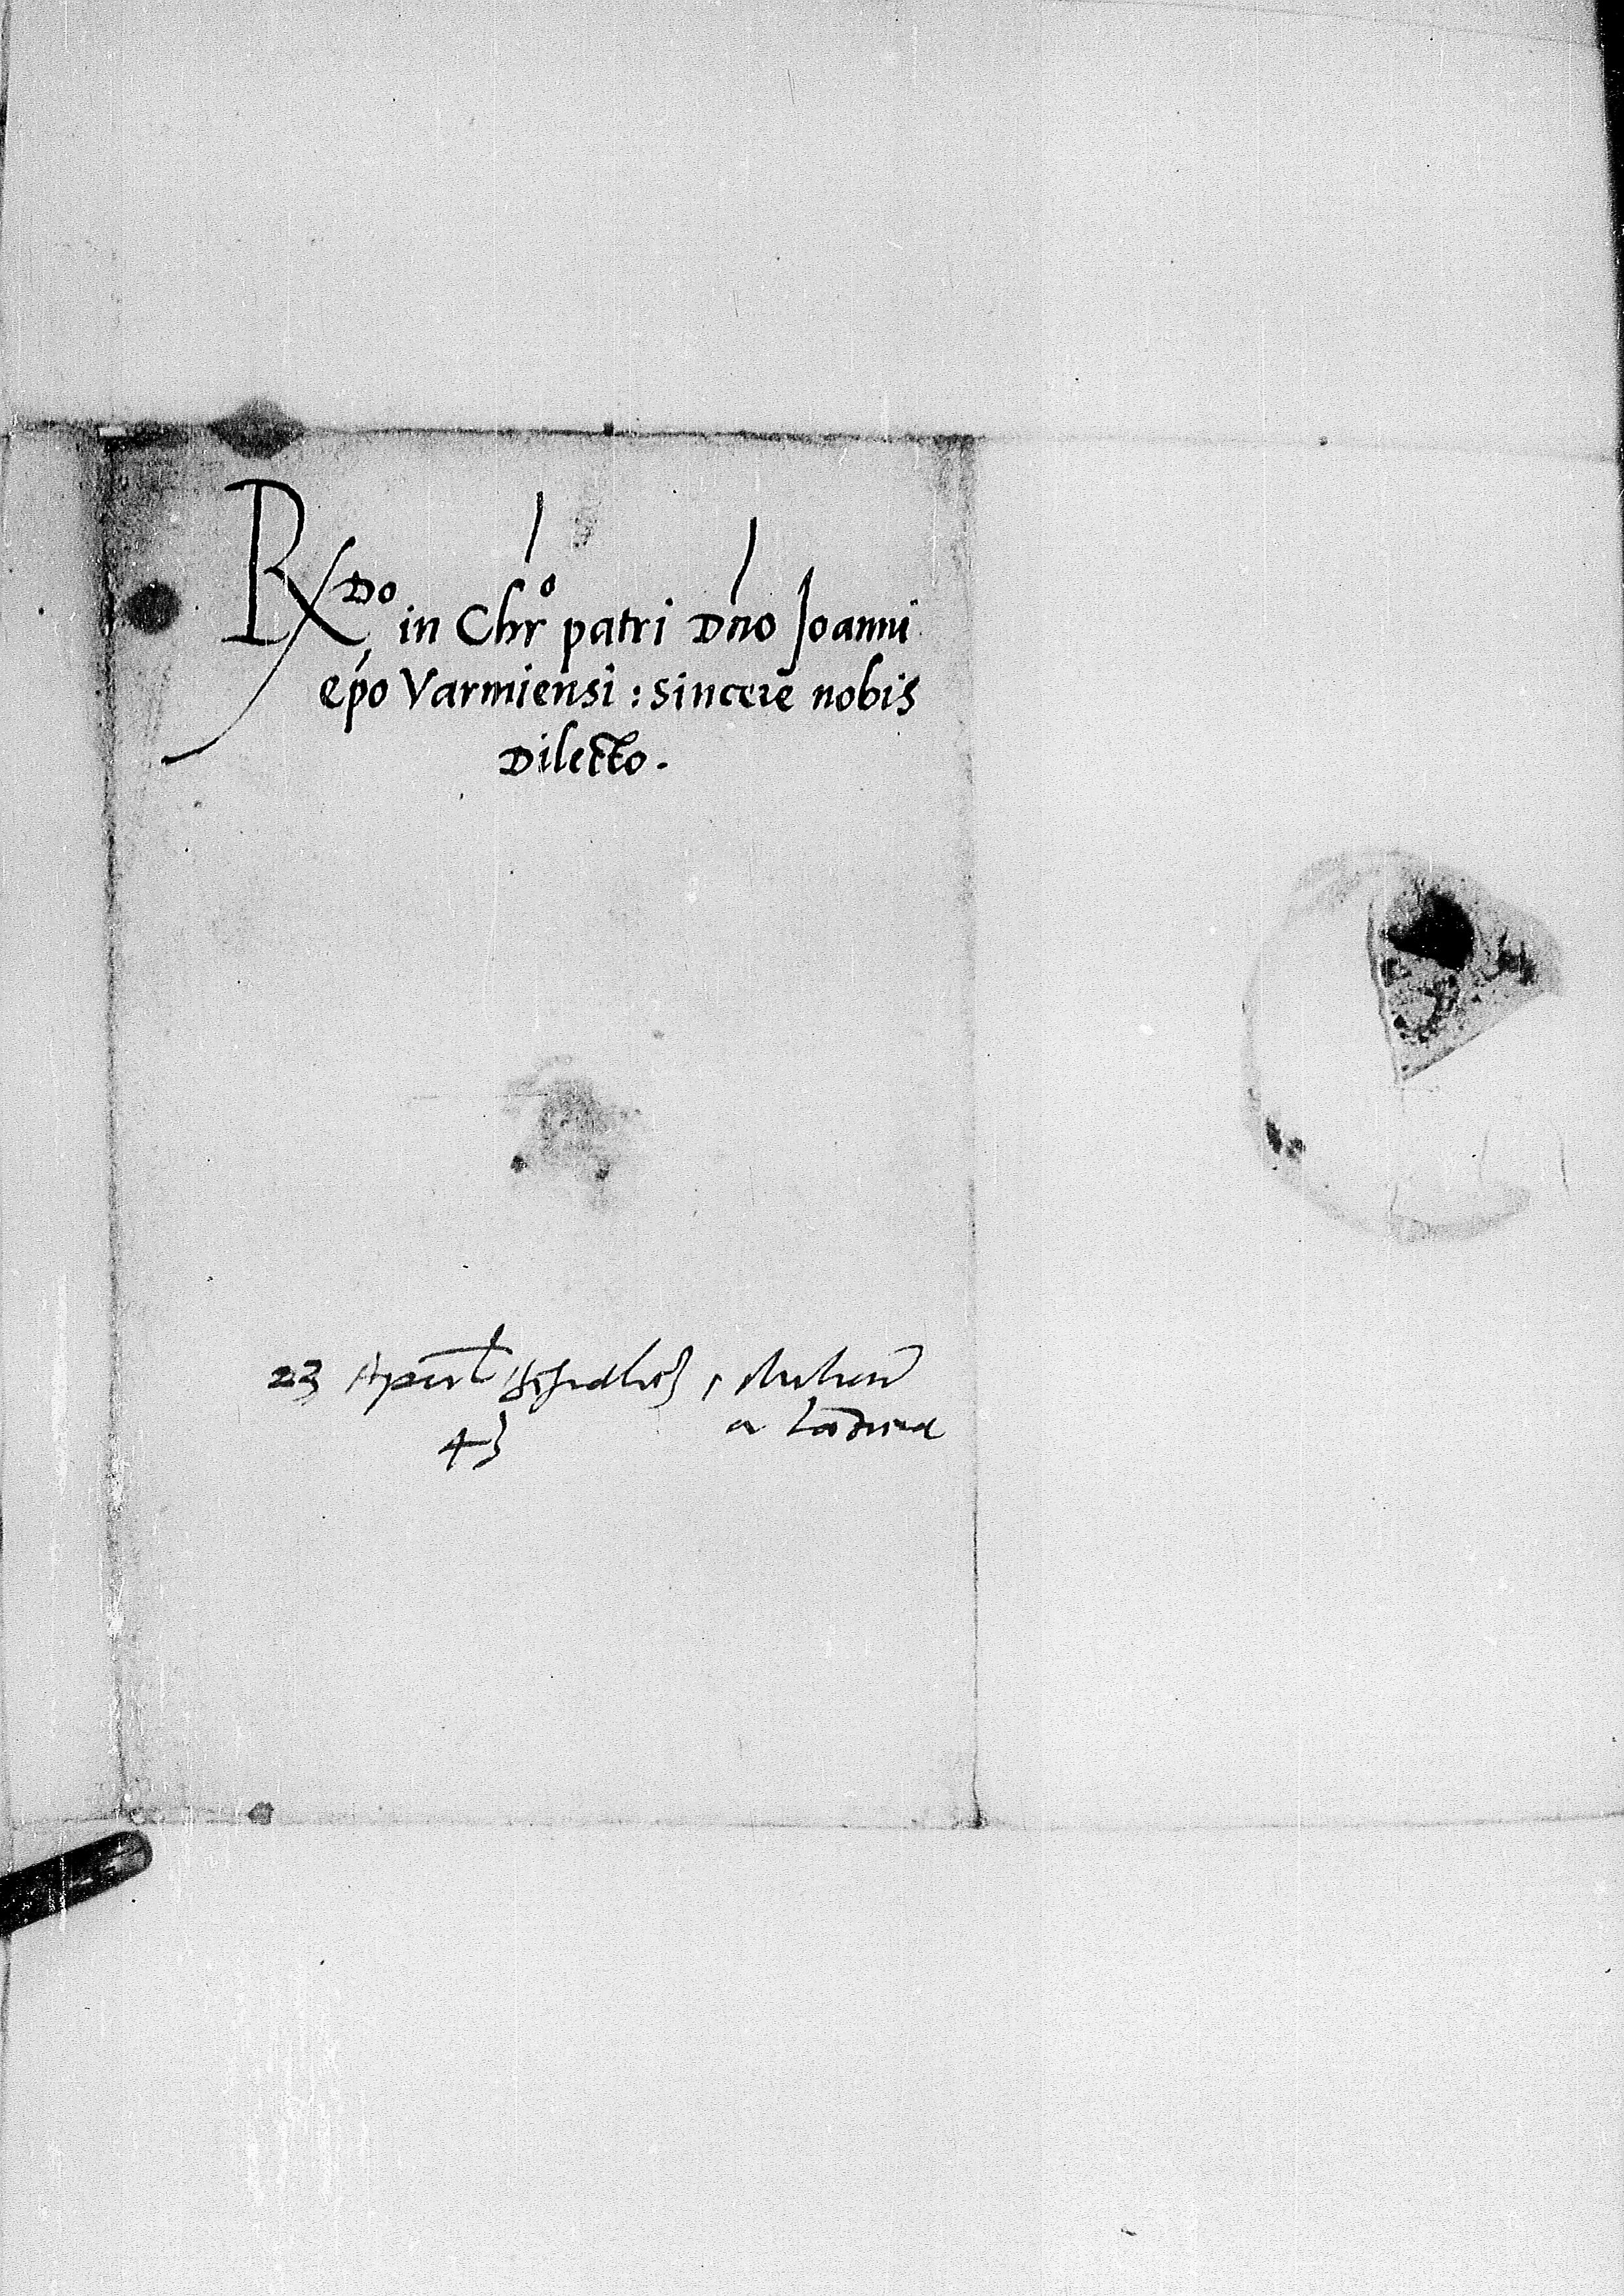 Rx Do in Chr̃o patri Dño Joanni
ep̃o Varmiensi : sincere nobis
Dilecto .
23 April
43